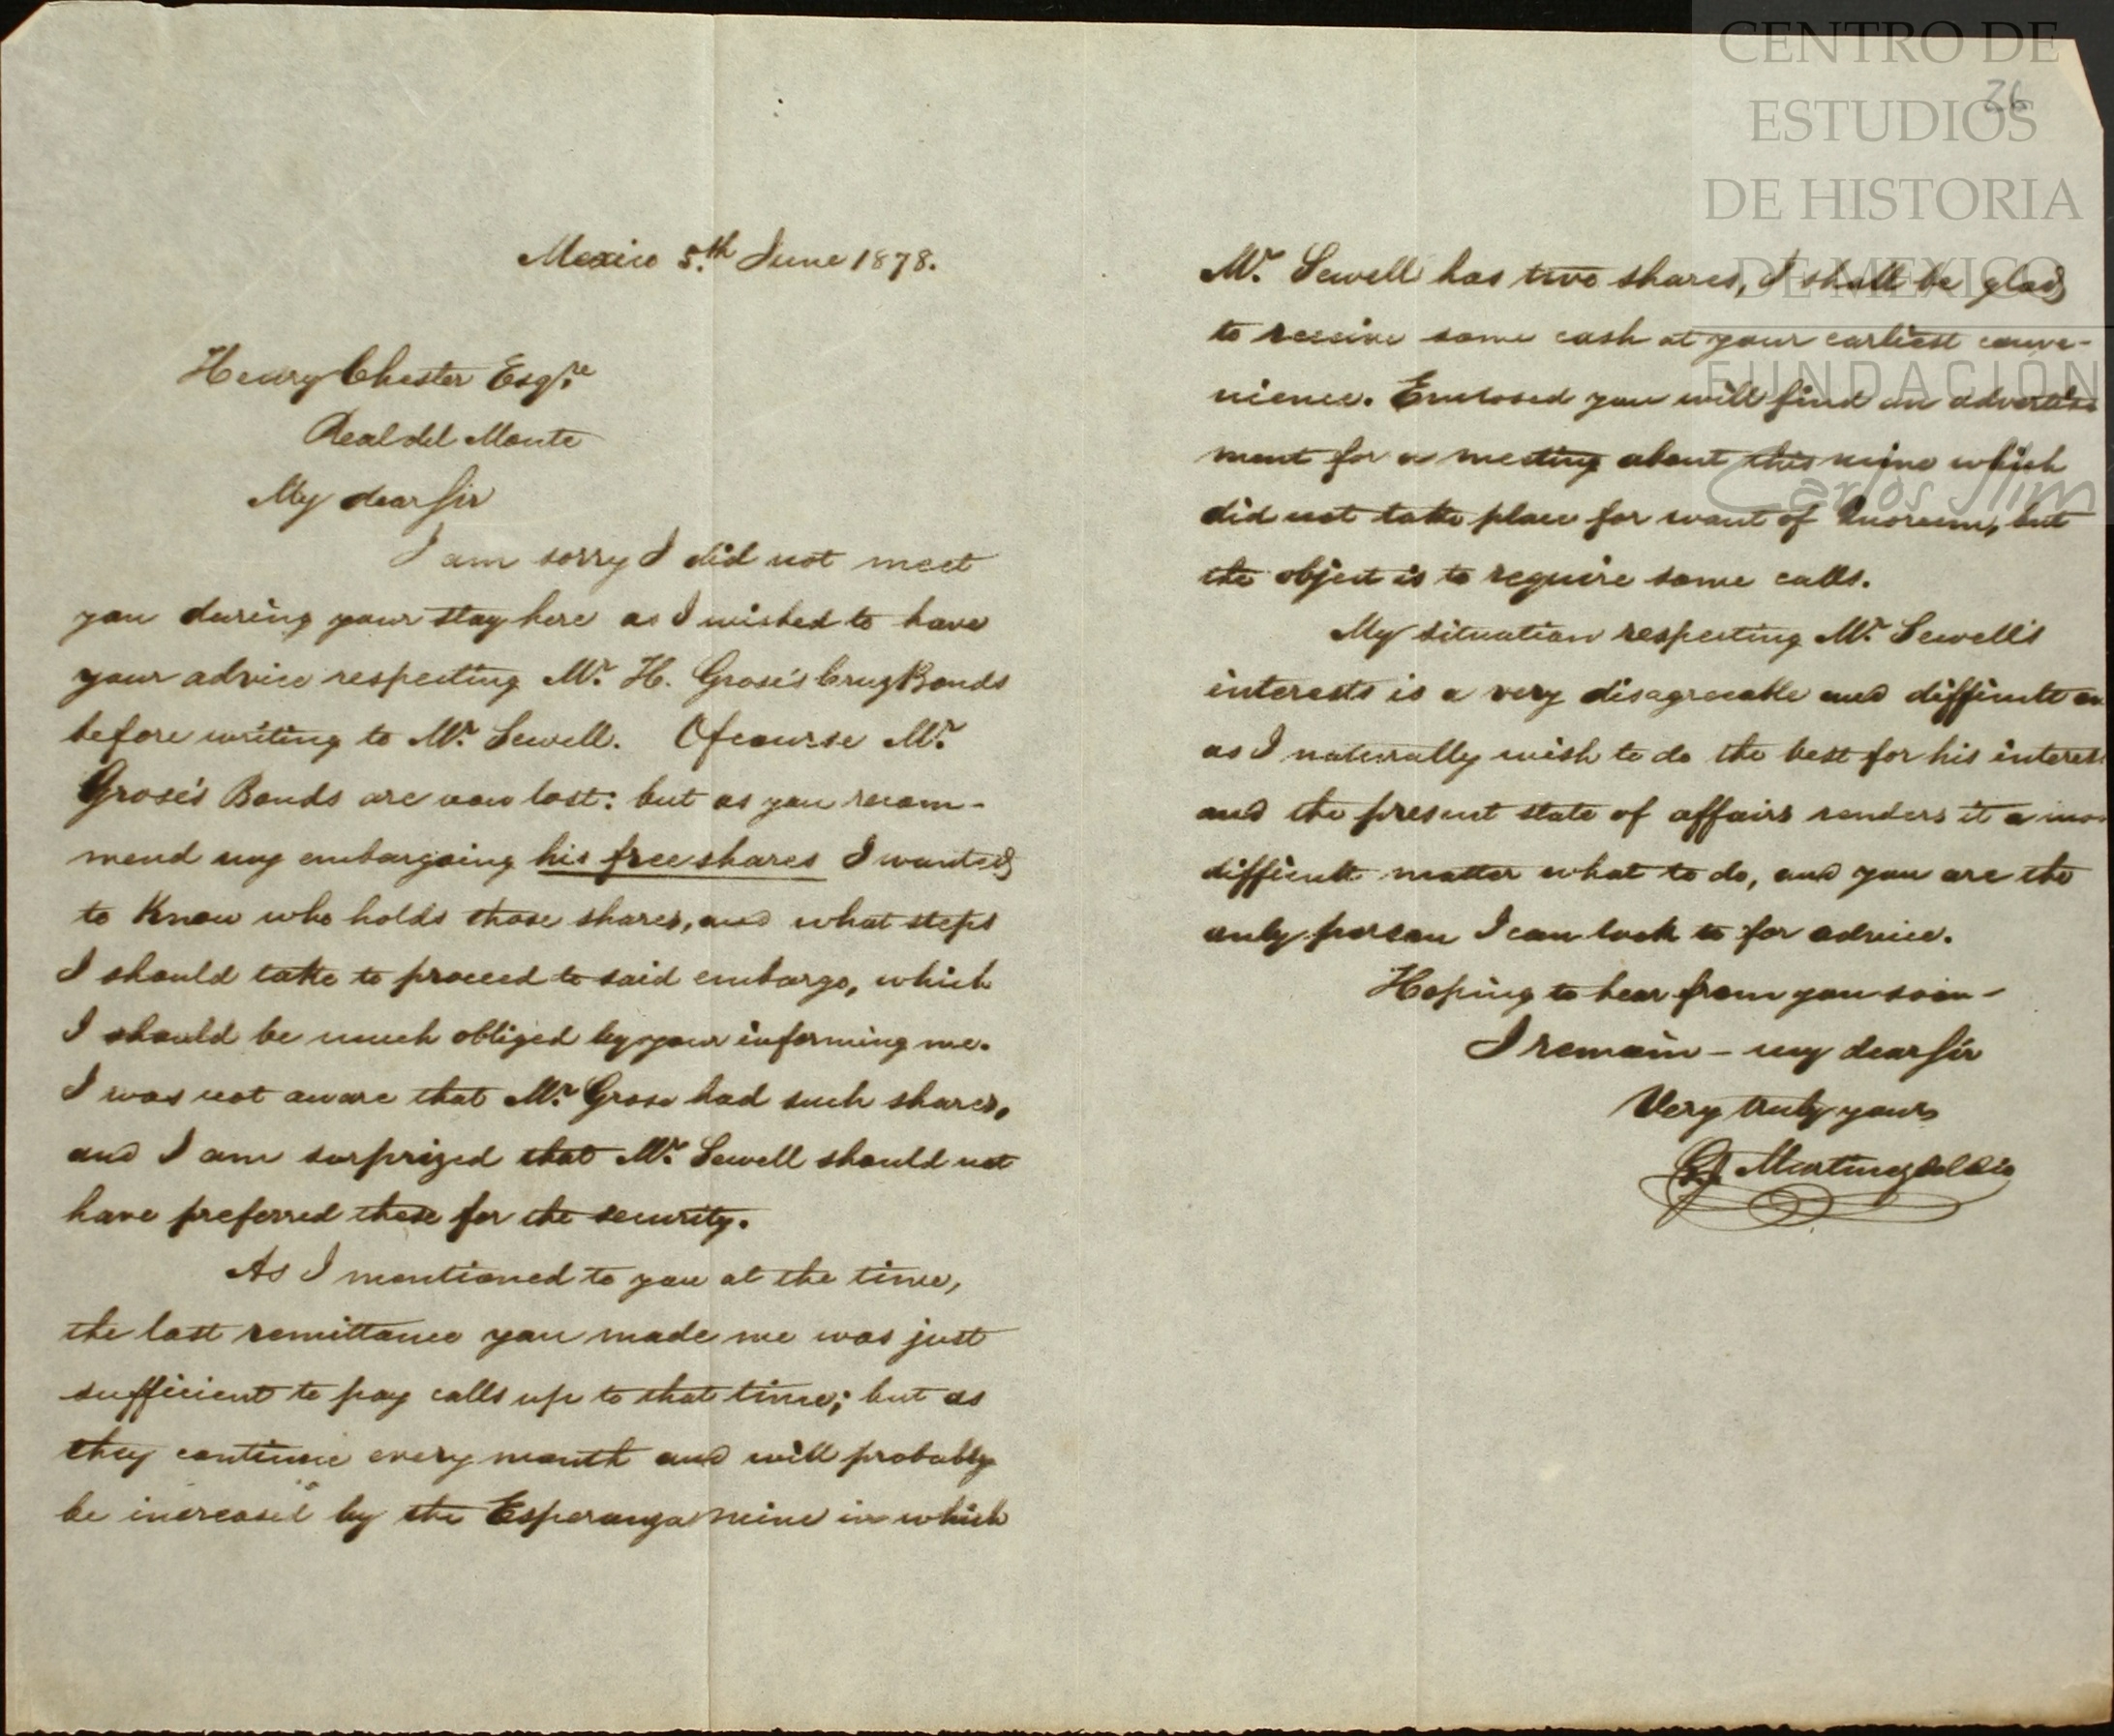 Mexico 5.th June 1878.
Henry Chester Esq.re
Real del Monte
My dear Sir
I am sorry I did not meet
you during your stay here as I wished to have
your advice respecting Mr. H. Grose's Cruz Bonds
before writing to Mr. Sewell. Of course Mr.
Grose's Bonds are now lost: but as you recom-
mend my embargoing his free shares I wanted
to know who holds those shares, and what steps
I should take to proceed to said embargo, which
I should be much obliged by your informing me.
I was not aware that Mr. Grose had such shares,
and I am surprized that Mr. Sewell should not
have preferred these for the security.
As I mentioned to you at the time,
the last remittance you made me was just
sufficient to pay calls up to that time; but as
they continue every month and will probably
be increased by the Esperanza mine in which
26
Mr. Sewell has two shares, I shall be glad
to receive some cash at your earliest conve-
nience. Enclosed you will find an advertise
ment for a meeting about this mine which
did not take place for want of Quorum, but
the object is to require some calls.
My situation respecting Mr. Sewell's
interests is a very disagreeable and difficult
as I naturally wish to do the best for his interest
and the present state of affairs renders it a
difficult matter what to do, and you are the
only person I can look to for advice.
Hoping to hear from you soon -
I remain - my dear Sir
Very truly yours
Martinez del Rio
CENTRO DE
ESTUDIOS
DE HISTORIA
DE MEXICO
FUNDACIÓN
Carlos Slim